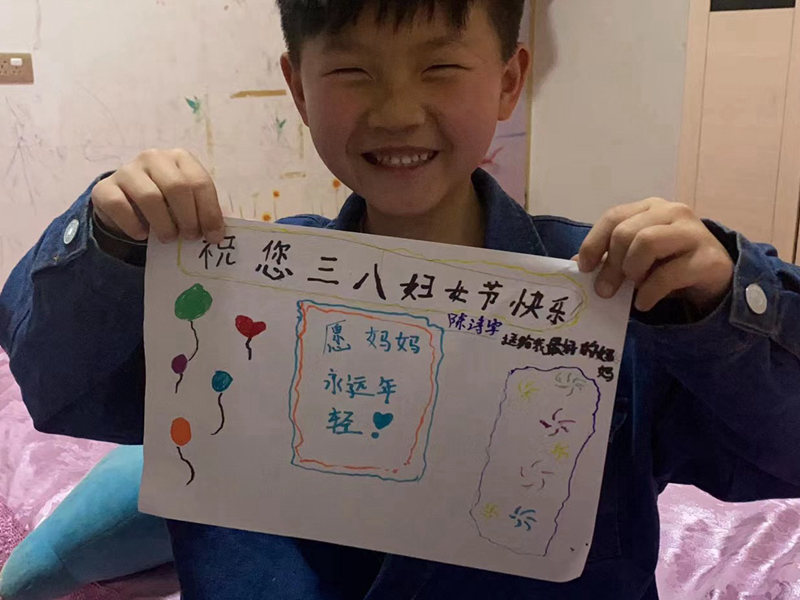 祝您三八妇女节快乐
陈诗宇
送给我最好的妈
妈
愿妈妈
永远年
轻!